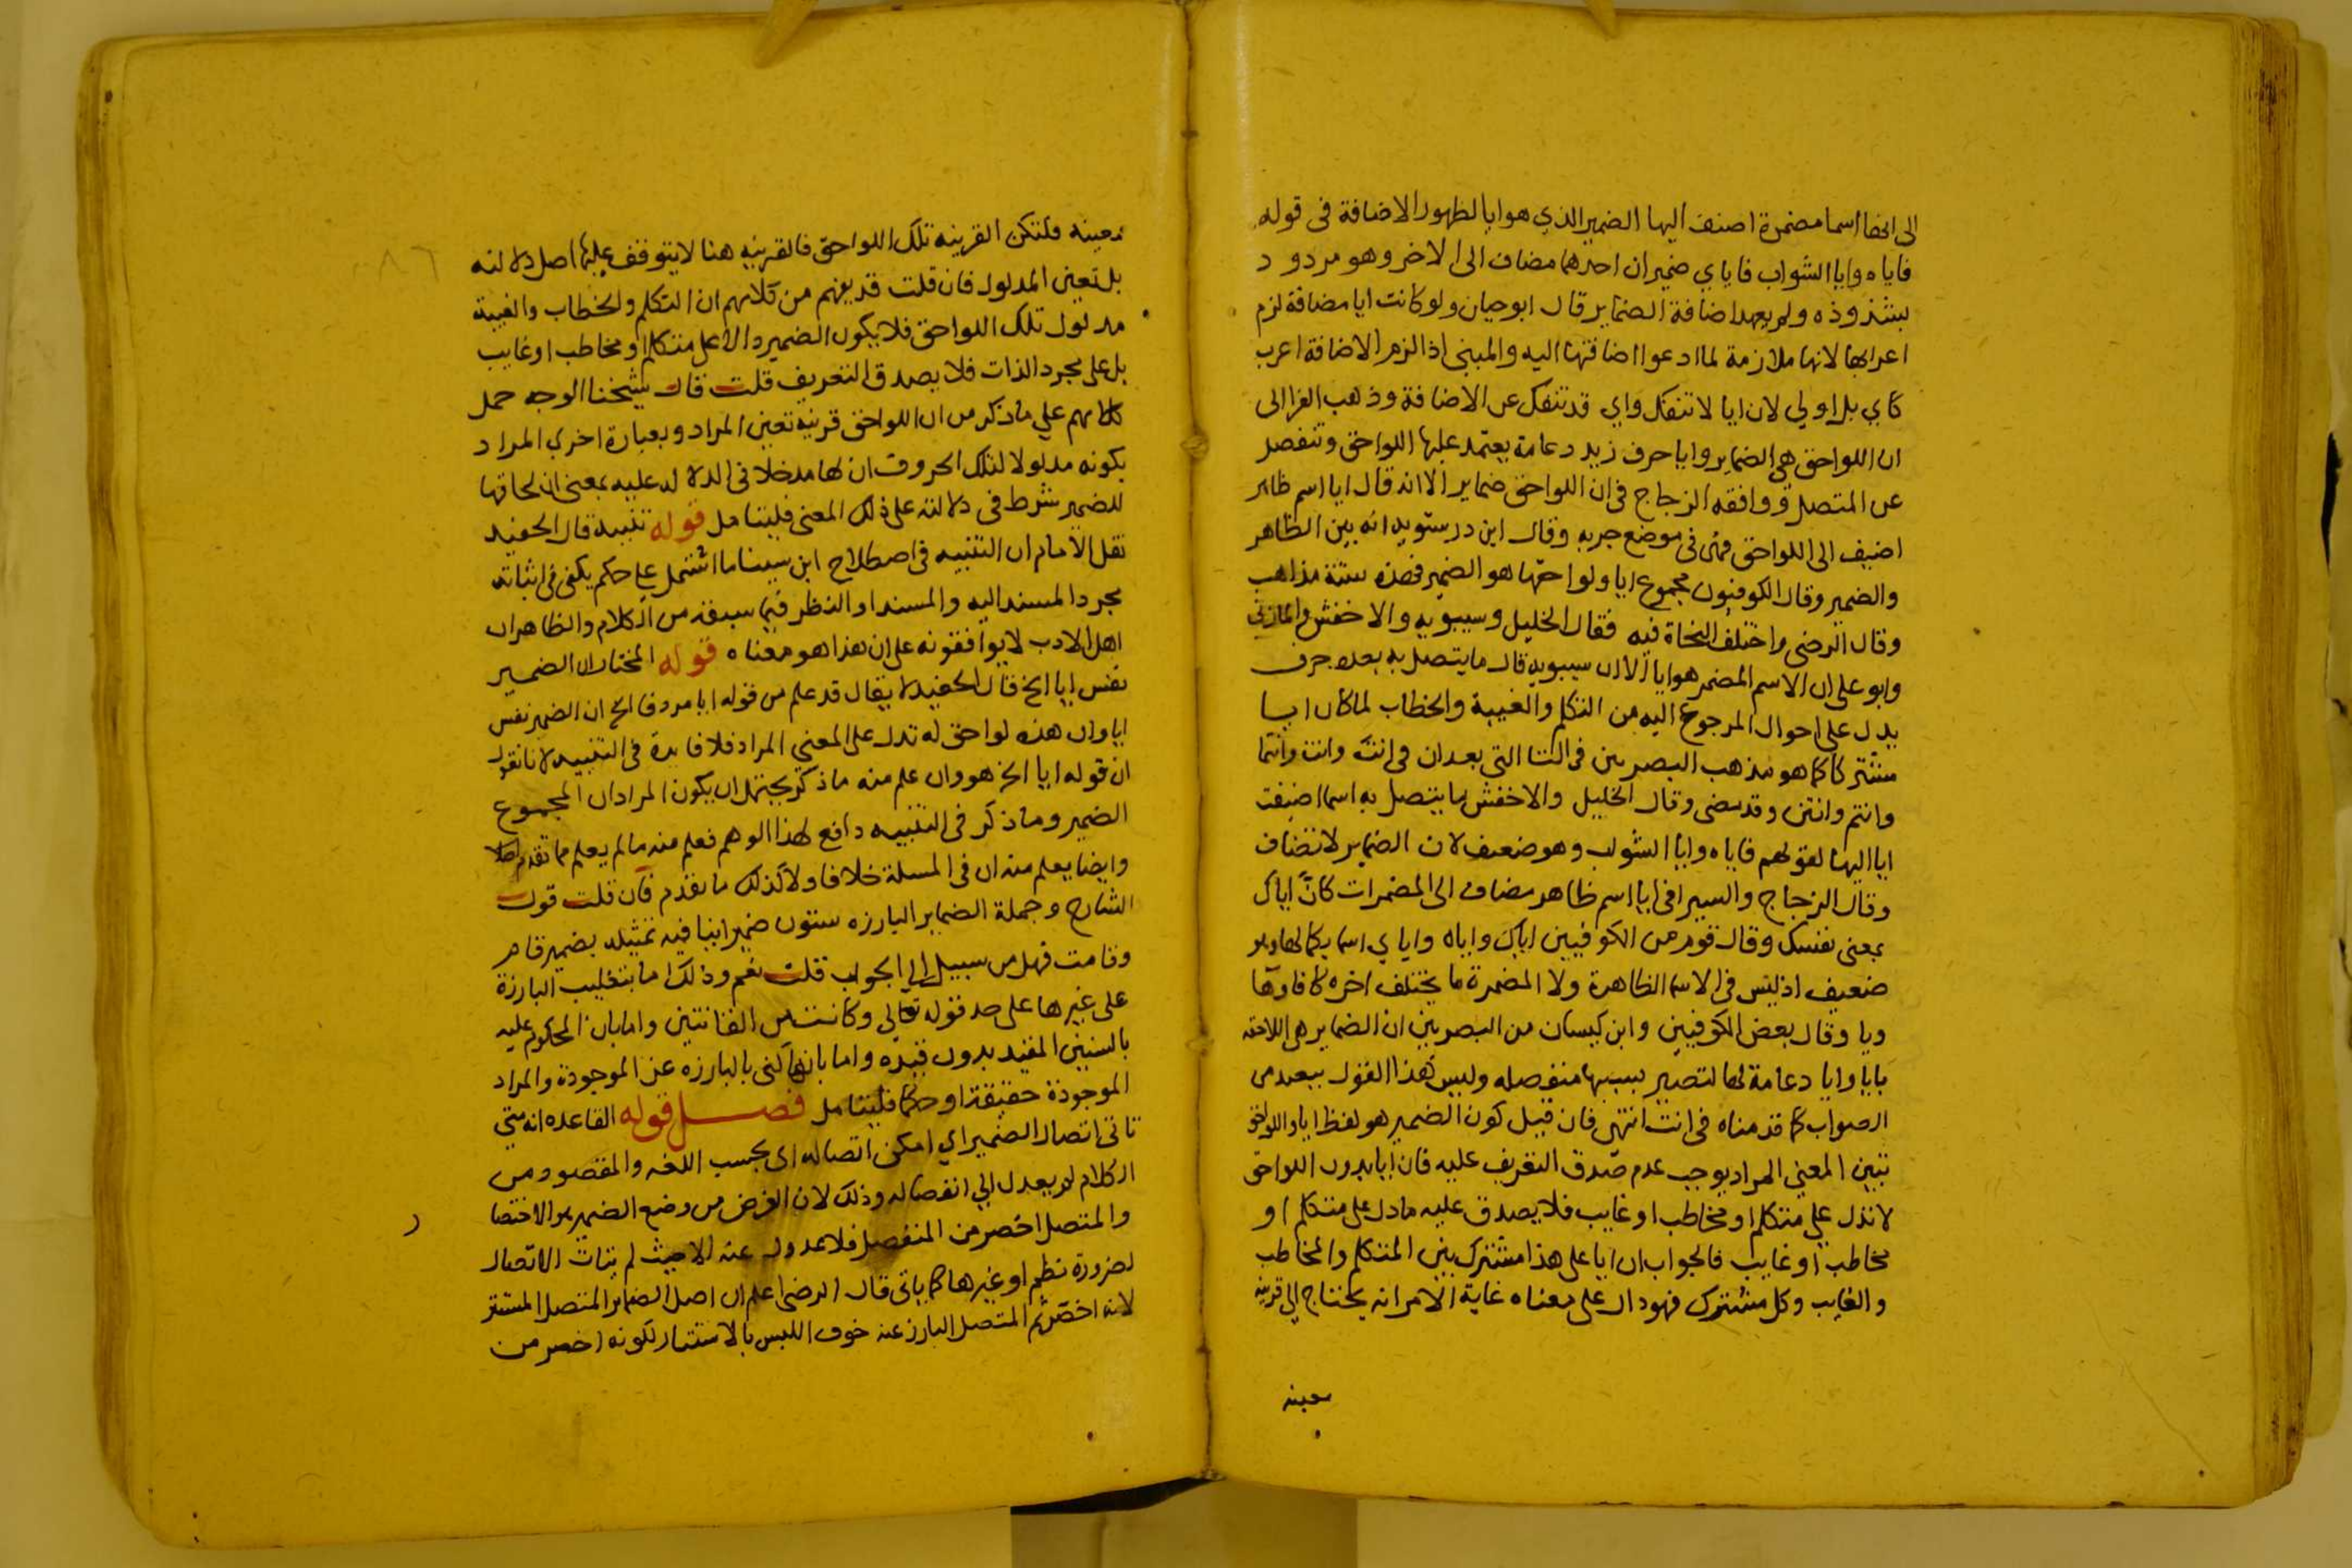 الى انها اسما مضمرة اضيف اليها الضمير الذي هو ايا لظهور الاضافة في قوله
فاياه وايا الشواب فاياي ضميران احدهما مضاف الى الاخر وهو مردود
بشذوذه ولم يعهد اضافة الضماير قال ابوحيان ولو كانت ايا مضافة لزم
اعرابها لانها ملازمة لما ادعوا اضافتها اليه والمبني اذا لزم الاضافة اعرب
كاي بل اولي لان ايا لا تنفك واي قد تنفك عن الاضافة وذهب الفرا الى
ان اللواحق هي الضماير وايا حرف زيد دعامة يعتمد عليها اللواحق وتنفصل
عن المتصل ووافقه الزجاج في ان اللواحق ضماير الا انه قال ايا اسم ظاهر
اضيف الى اللواحق فهي في موضع جر به وقال ابن درستويه انه بين الظاهر
والضمير وقال الكوفيون مجموع ايا ولواحقها هو الضمير فهذه ستة مذاهب
وقال الرضى واختلف النحاة فيه فقال الخليل وسيبويه والاخفش والمازني
وابو على ان الاسم المضمر هو ايا الا ان سيبويه قال ما يتصل به بعده حرف
يدل على احوال المرجوع اليه من التكلم والغيبة والخطاب لما كان ايا
مشتركا كما هو مذهب البصريين في التا التي بعد ان في انت وانت وانتما
وانتم وانتن وقد مضى وقال الخليل والاخفش ما يتصل به اسما اضيفت
ايا اليها لقولهم فاياه وايا الشواب وهو ضعيف لان الضماير لا تضاف
وقال الزجاج والسيرافي ايا اسم ظاهر مضاف الى المضمرات كانّ اياك
بمعنى نفسك وقال قوم من الكوفيين اياك واياه واياي اسما بكمالها وهو
ضعيف اذ ليس في الاسما الظاهرة ولا المضمرة ما يختلف اخره كافا وها
ويا وقال بعض الكوفيين وابن كيسان من البصريين ان الضماير هي اللاحقه
بايا وايا دعامة لها لتصير بسببها منفصله وليس هذا القول ببعيد من
الصواب كما قدمناه في انت انتهى فان قيل كون الضمير هو لفظ ايا واللواحق
تبين المعنى المراد يوجب عدم صدق التعريف عليه فان ايا بدون اللواحق
لا تدل علي متكلم او مخاطب او غايب فلا يصدق عليه ما دل على متكلم او
مخاطب او غايب فالجواب ان ايا على هذا مشترك بين المتكلم والمخاطب
والغايب وكل مشترك فهو دال على معناه غاية الامر انه يحتاج الي قرينة
معينه
٨٦
معينه فلتكن القرينه تلك اللواحق فالقرينه هنا لا يتوقف عليها اصل دلالته
بل تعين المدلول فان قلت قد يفهم من كلامهم ان التكلم والخطاب والغيبة
مدلول تلك اللواحق فلا يكون الضمير دالا على متكلم او مخاطب او غايب
بل على مجرد الذات فلا يصدق التعريف قلت قال شيخنا الوجه حمل
كلامهم علي ما ذكر من ان اللواحق قرينة تعين المراد وبعبارة اخري المراد
بكونه مدلولا لتلك الحروف ان لها مدخلا في الدلاله عليه بمعنى ان لحاقها
للضمير شرط في دلالته على ذلك المعنى فليتامل قوله تنبيه قال الحفيد
نقل الامام ان التنبيه في اصطلاح ابن سينا ما اشتمل علي حكم يكفي في اثباته
مجرد المسند اليه والمسند او النظر فيما سبقه من الكلام والظاهر ان
اهل الادب لا يوافقونه على ان هذا هو معناه قوله المختار ان الضمير
نفس ايا الخ قال الحفيد لا يقال قد علم من قوله ايا مردفا الخ ان الضمير نفس
ايا وان هذه لواحق له تدل على المعني المراد فلا فايدة في التنبيه لانا نقول
ان قوله ايا الخ هو وان علم منه ما ذكر يحتمل ان يكون المراد ان المجموع
الضمير وما ذكر في التنبيه دافع لهذا الوهم فعلم منه ما لم يعلم مما تقدم اصلا
وايضا يعلم منه ان في المسلة خلافا ولا كذلك ما تقدم فان قلت قول
الشارح وجملة الضماير البارزه ستون ضميرا ينافيه تمثيله بضمير قام
وقامت فهل من سبيل الي الجواب قلت نعم وذلك اما بتغليب البارزة
على غيرها على حد قوله تعالي وكانت من القانتين واما بان المحكوم عليه
بالستين المقيد بدون قيده واما بانه كنى بالبارزه عن الموجودة والمراد
الموجودة حقيقة او حكما فليتامل فصل قوله القاعده انه متي
تاتى اتصال الضمير اي امكن اتصاله اى بحسب اللغه والمقصود من
الكلام لم يعدل الي انفصاله وذلك لان الغرض من وضع الضمير هو الاختصا
ر
والمتصل اخصر من المنفصل فلا عدول عنه الا حيث لم يتات الاتصال
لضرورة نظم او غيرها كما ياتى قال الرضى اعلم ان اصل الضماير المتصل المستتر
لانه اخصر ثم المتصل البارز عند خوف اللبس بالاستتار لكونه اخصر من